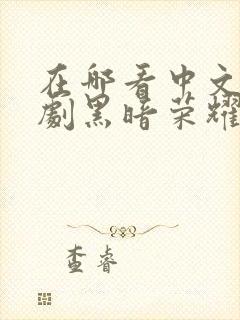 在哪看中文
劇黑暗荣耀
查睿